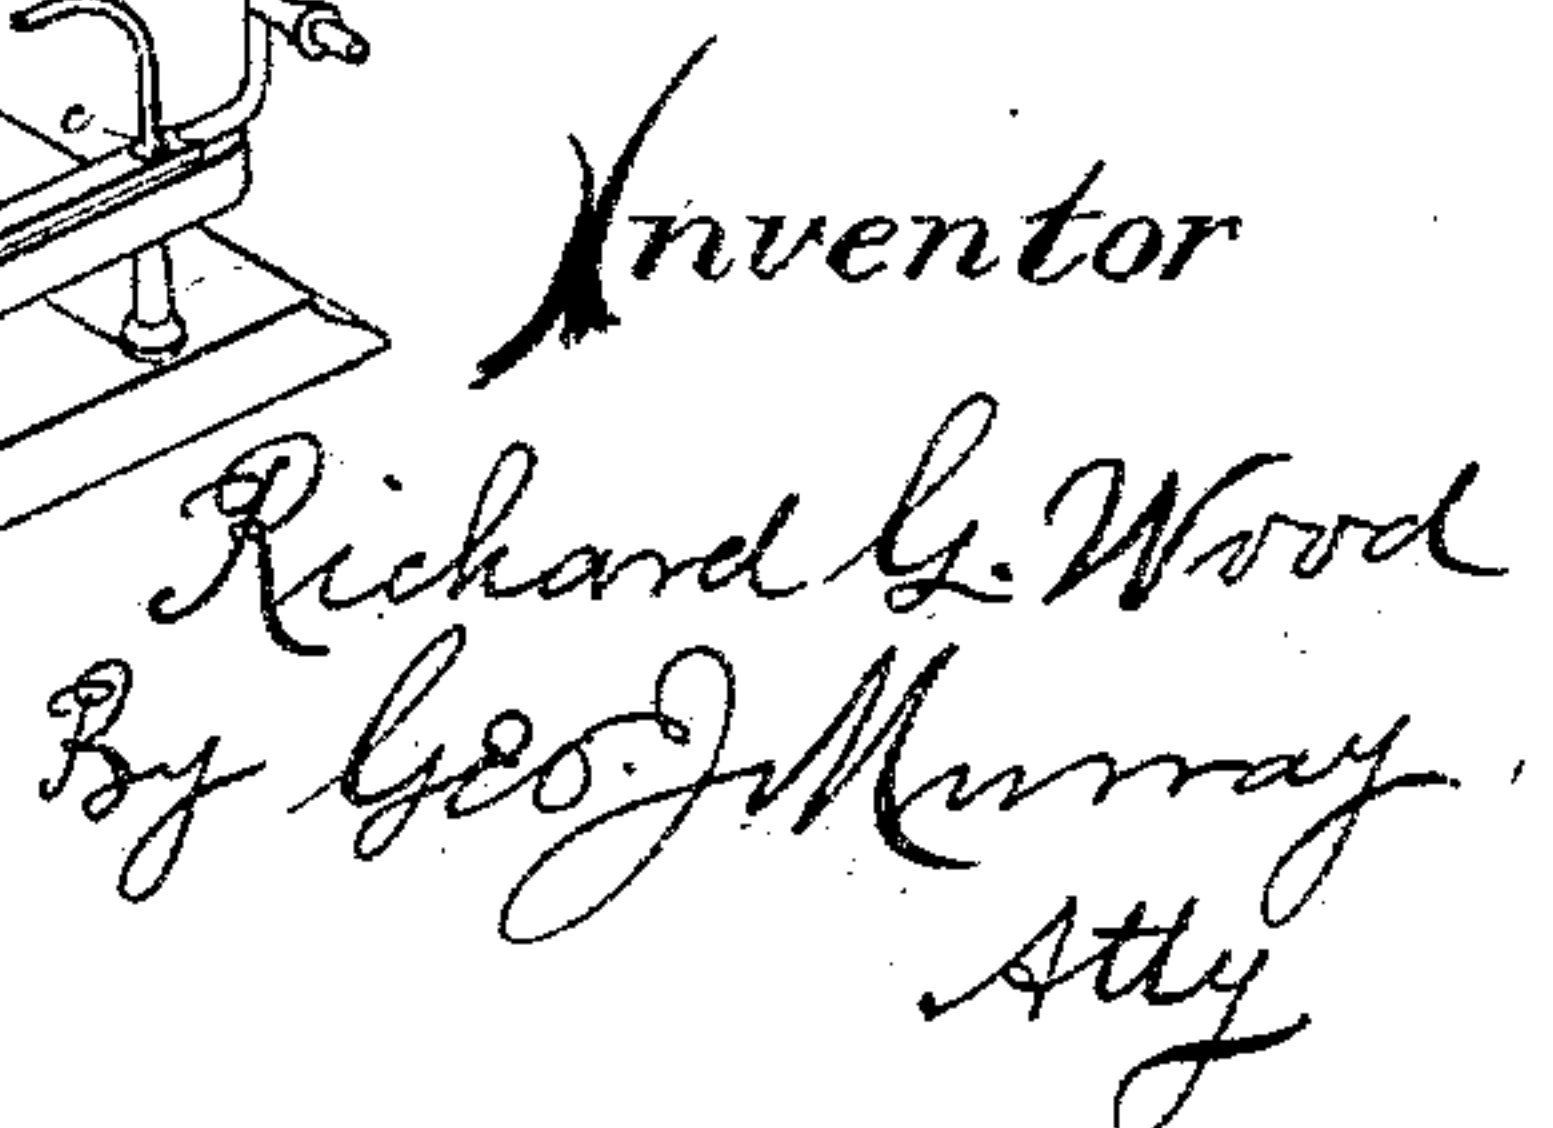 c
Inventor
Richard G. Wood
By Geo. J. Murray
Atty